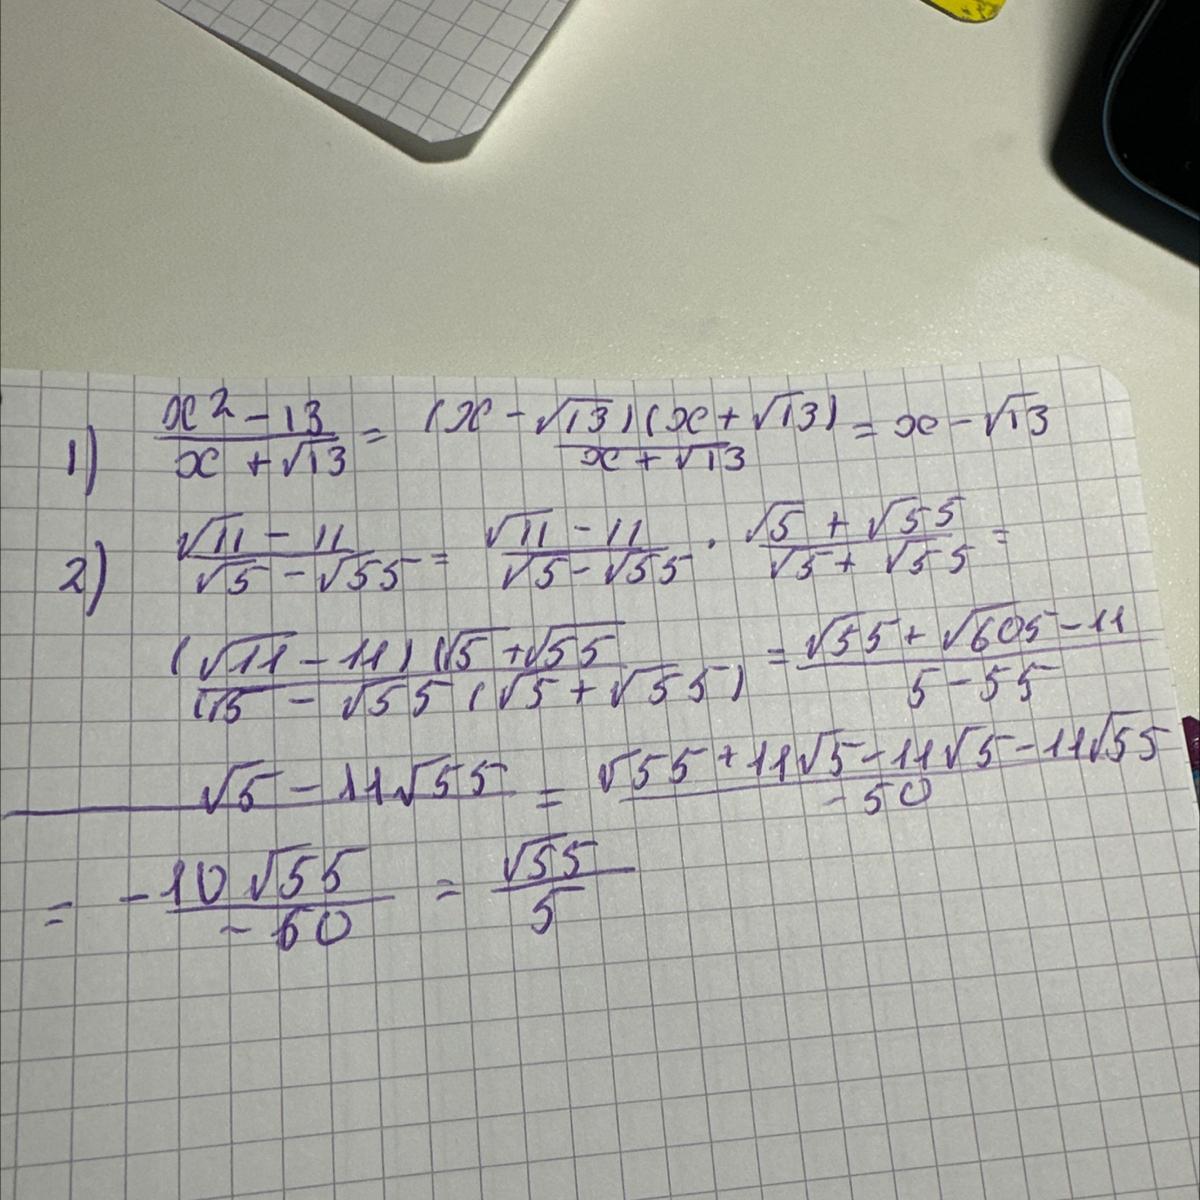 1) (x² - 13)/(x + √13) = (x - √13)(x + √13)/(x + √13) = x - √13
2) (√11 - 11)/(√5 - √55) = (√11 - 11)/(√5 - √55) · (√5 + √55)/(√5 + √55) =
(√11 - 11)(√5 + √55/(√5 - √55(√5 + √55) = (√55 + √605 - 11)/(5 - 55)
√5 - 11√55 = (√55 + 11√5 - 11√5 - 11√55)/(-50)
= (-10√55)/(-50) = √55/5